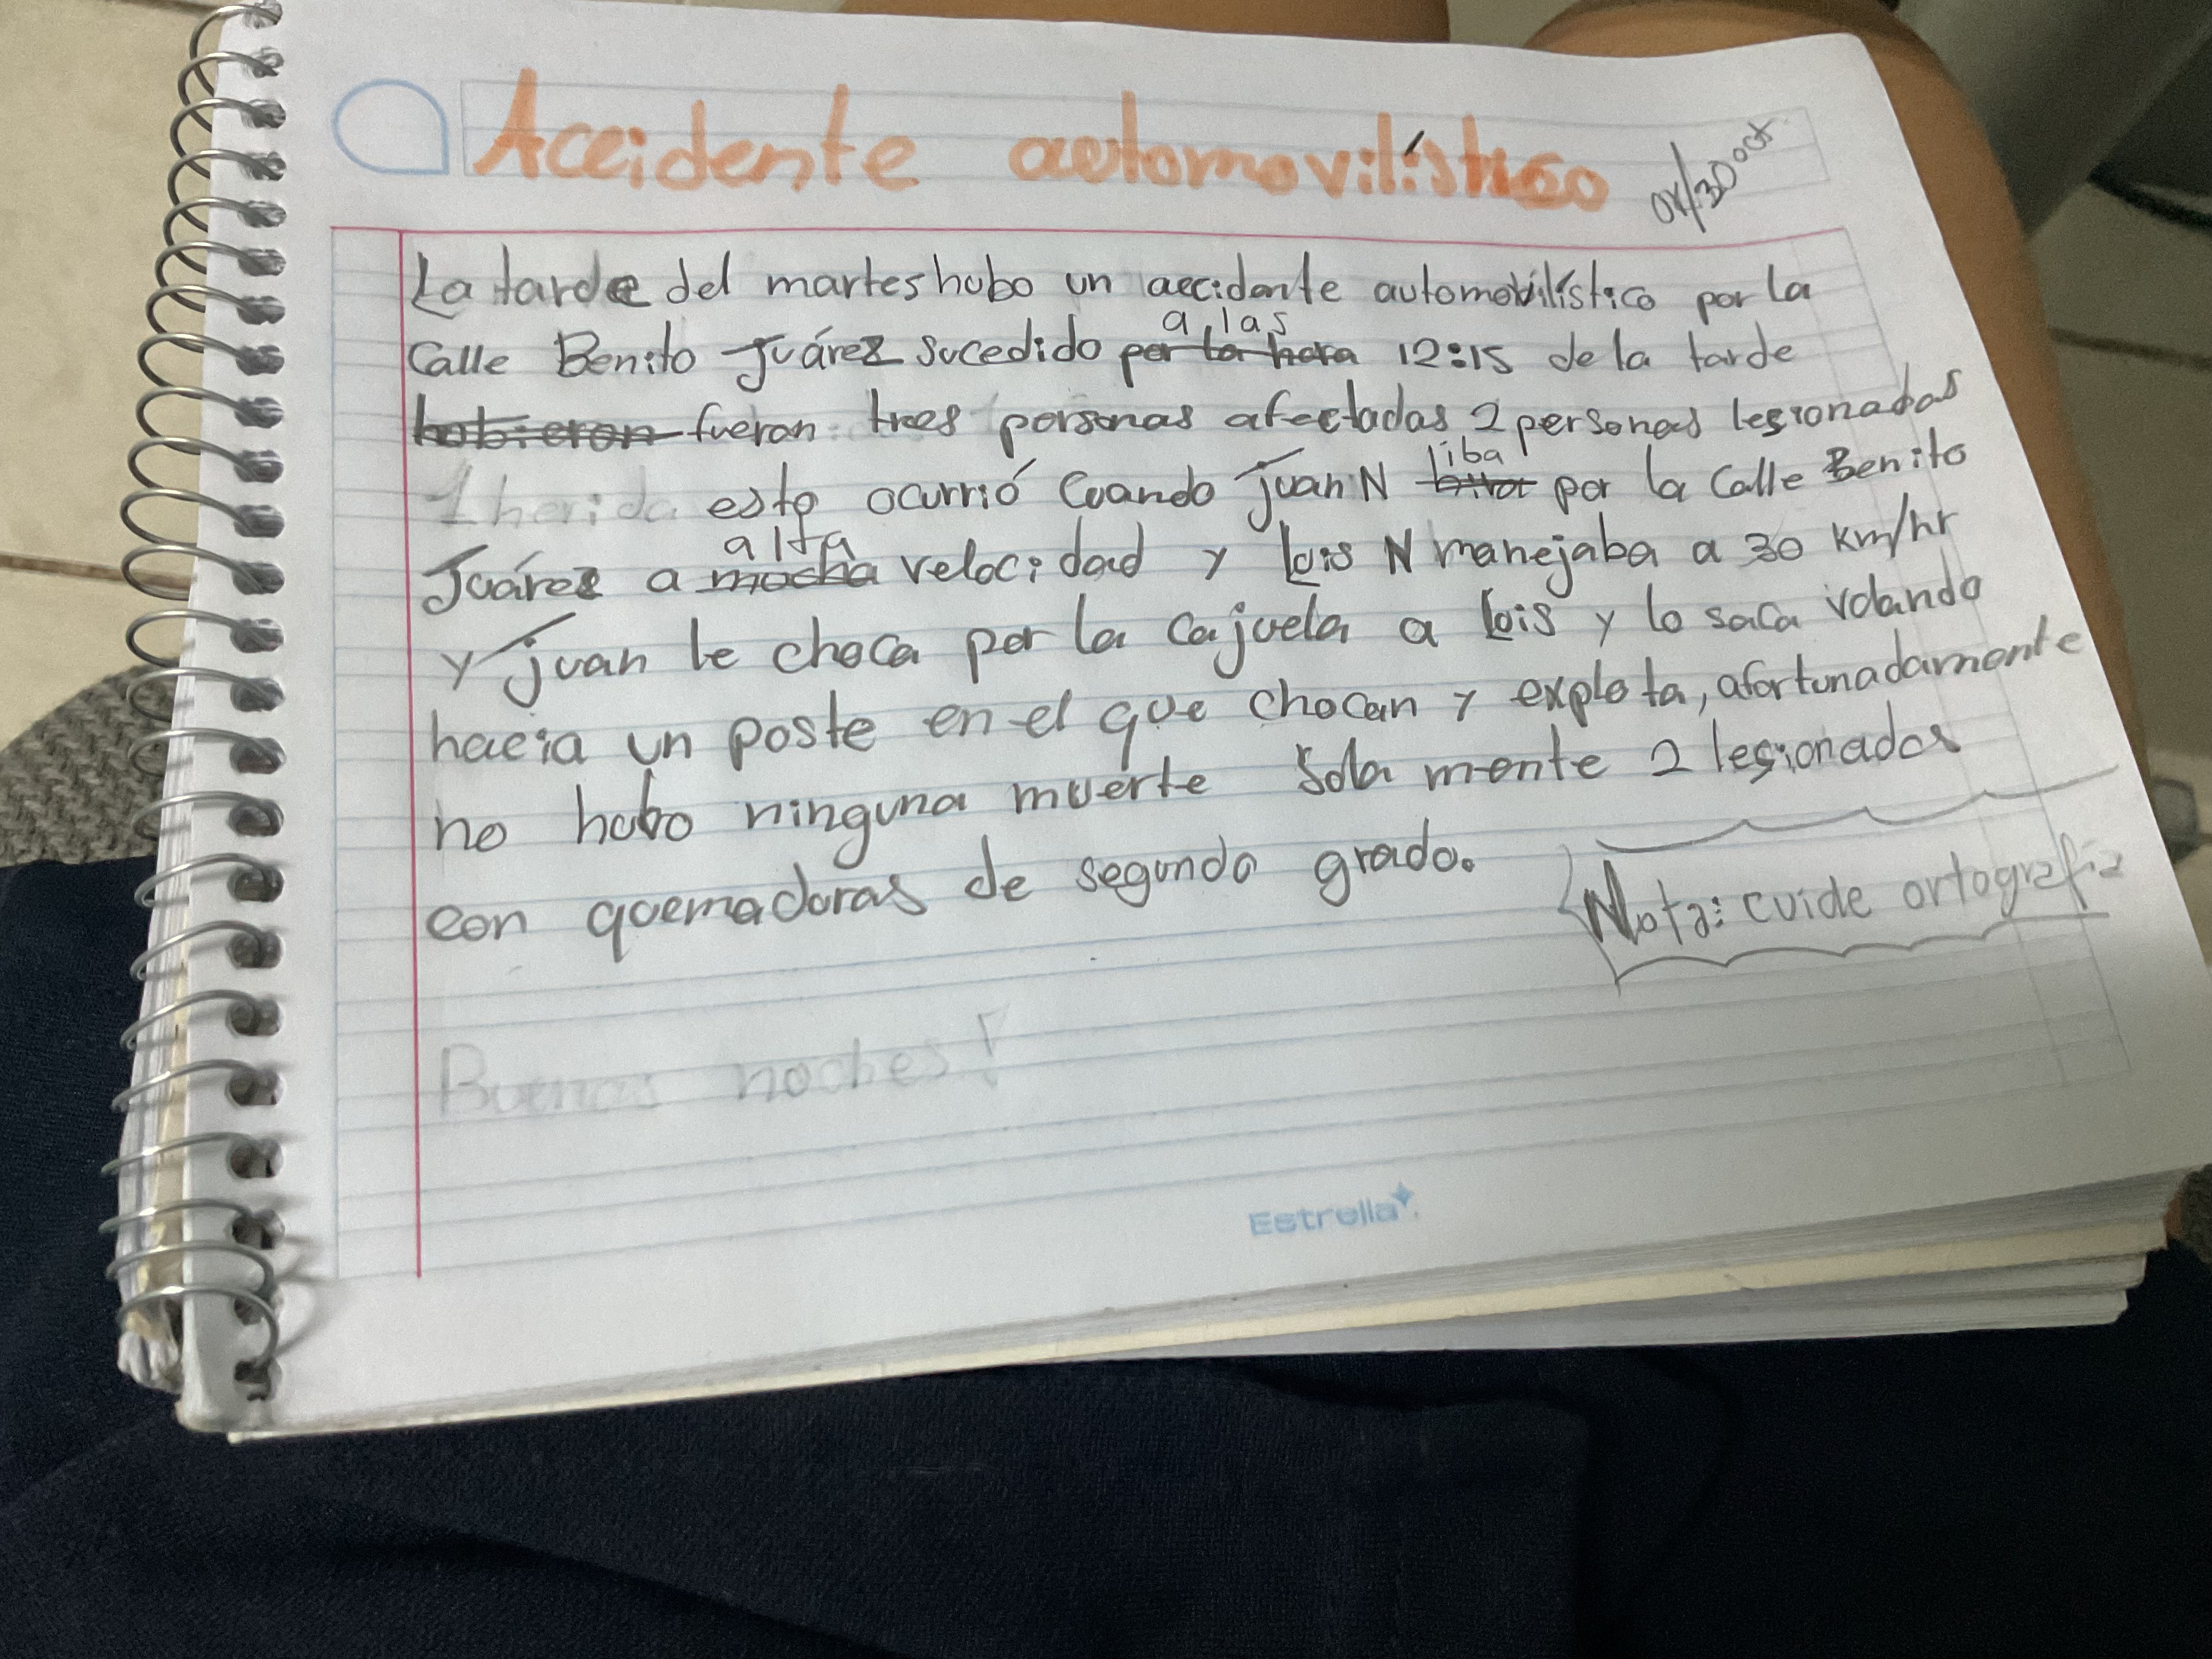 Accidente automovilístico
30 oct.
La tarde del martes hubo un accidente automovilístico por la
a las
Calle Benito Juárez sucedido por la hora 12:15 de la tarde
hobieron fueron tres personas afectadas 2 personas lesionadas
1 herida esto ocurrió cuando Juan N iba por la Calle Benito
alta
Juárez a mucha velocidad y Luis N manejaba a 30 km/hr
y Juan le choca por la cajuela a Luis y lo saca volando
hacia un poste en el que chocan y explota, afortunadamente
no hubo ninguna muerte Sola mente 2 lesionados
con quemaduras de segundo grado.
Nota: cuide ortografía
Buenas noches!
Estrella